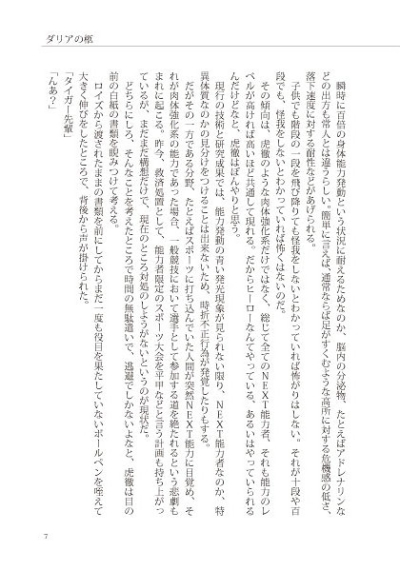 ダリアの柩
瞬時に百倍の身体能力発動という状況に耐えるためなのか、脳内の分泌物、たとえばアドレナリンな
どの出方も常人とは違うらしい。簡単に言えば、通常ならば足がすくむような高所に対する危機感の低さ、
落下速度に対する耐性などがあげられる。
子供でも階段の一段を飛び降りても怪我をしないとわかっていれば怖がりはしない。それが十段や百
段でも、怪我をしないとわかっていれば怖くはないのだ。
その傾向は、虎徹のような肉体強化系だけではなく、総じて全てのＮＥＸＴ能力者、それも能力のレ
ベルが高ければ高いほど共通して現れる。だからヒーローなんてやっている、あるいはやっていられる
んだけどなと、虎徹はぼんやりと思う。
現行の技術と研究成果では、能力発動の青い発光現象が見られない限り、ＮＥＸＴ能力者なのか、特
異体質なのかの見分けをつけることは出来ないため、時折不正行為が発覚したりもする。
だがその一方である分野、たとえばスポーツに打ち込んでいた人間が突然ＮＥＸＴ能力に目覚め、そ
れが肉体強化系の能力であった場合、一般競技において選手として参加する道を絶たれるという悲劇も
まれに起こる。昨今、救済処置として、能力者限定のスポーツ大会を平甲などと言う計画も持ち上がっ
ているが、まだまだ構想だけで、現在のところ対処のしようがないというのが現状だ。
どちらにしろ、そんなことを考えたところで時間の無駄遣いで、逃避でしかないよなと、虎徹は目の
前の白紙の書類を睨みつけて考える。
ロイズから渡されたままの書類を前にしてからまだ一度も役目を果たしていないボールペンを咥えて
大きく伸びをしたところで、背後から声が掛けられた。
「タイガー先輩」
「んあ？」
7